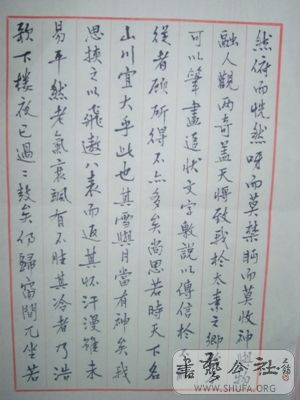 然俯而恍然呀而莫禁眄而莫收神與物
融人觀兩奇蓋天將致我於太素之鄉
可以筆畫追狀文字數說以傳信於
從者顧所得不亦多矣尚思若時天下名
山川宜大乎此也其雪與月當有神矣我
思挾之以飛遨八表而返其懷汗漫雖未
易平然老氣衰颯有不勝其冷者乃浩
歌下樓夜已過二鼓矣仍歸窗間兀坐若
書藝公社
WWW.SHUFA.ORG